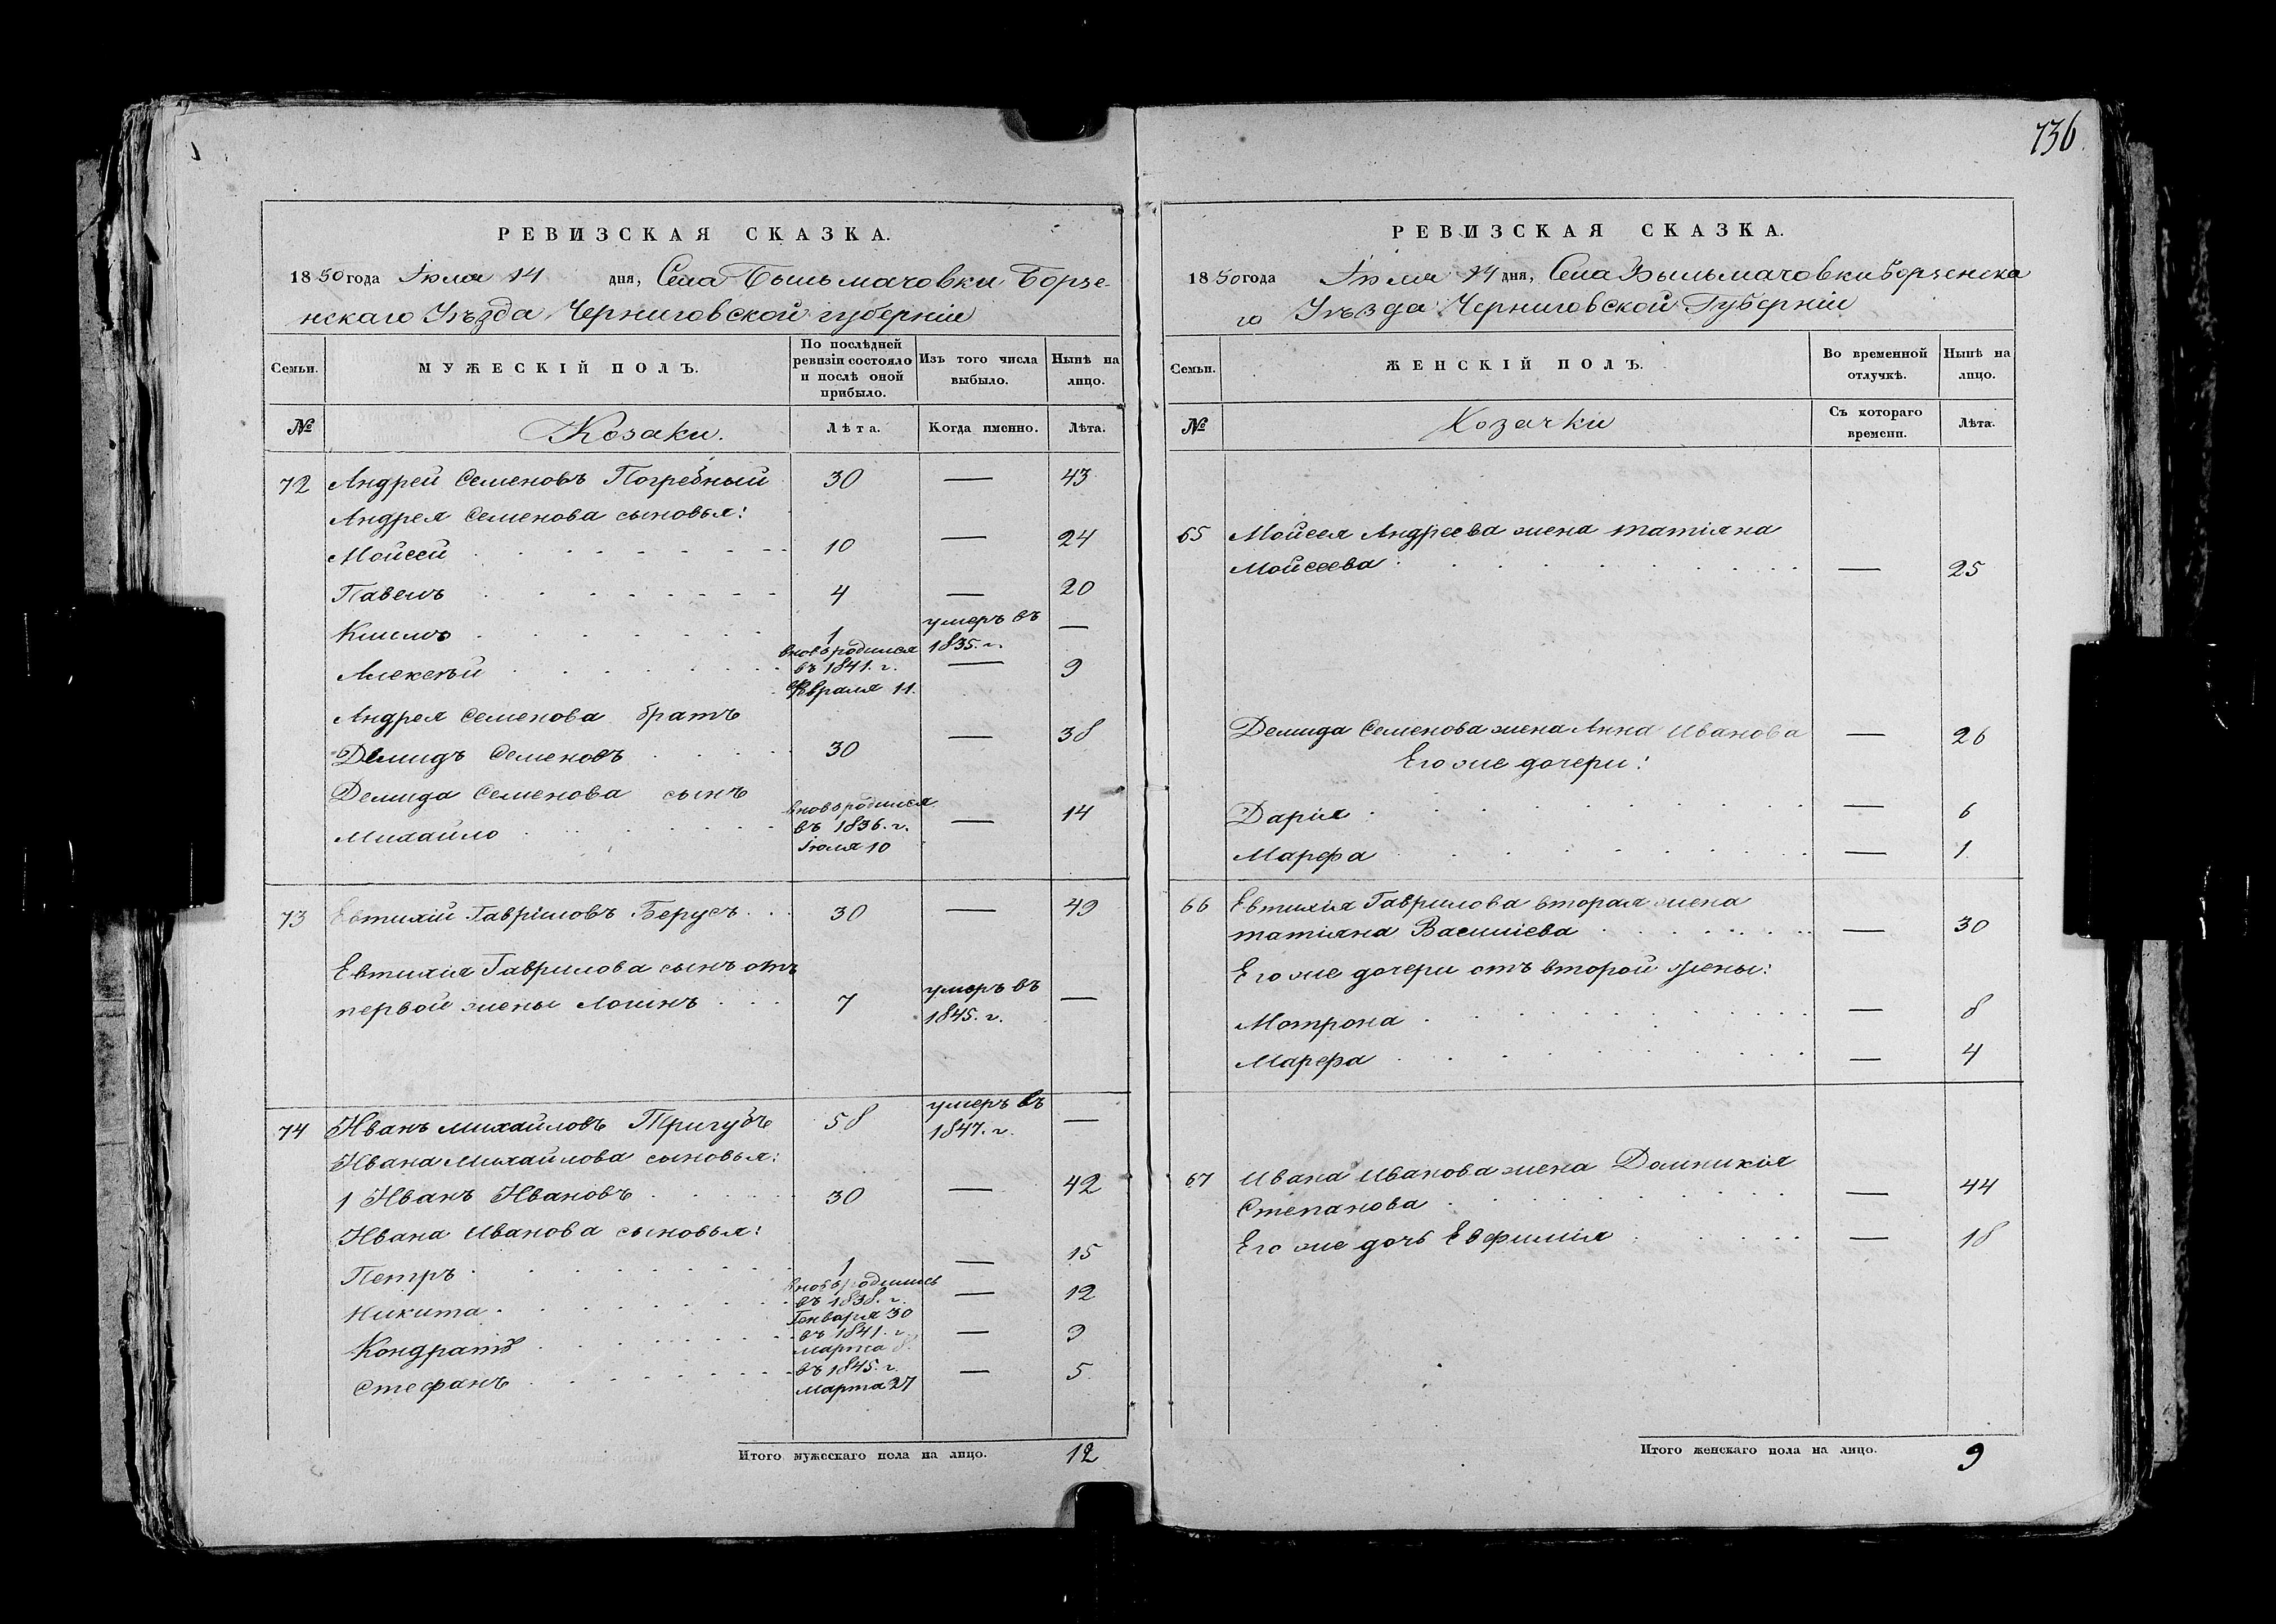 136
РЕВИЗСКАЯ СКАЗКА.
1850 года Іюля 14 дня, Села Быльмачовки Борзе-
нскаго Уѣзда Черниговской губерніи
Семьи.
МУЖЕСКІЙ ПОЛЪ.
По послѣдней ревизіи состояло и послѣ оной прибыло.
Изъ того числа выбыло.
Нынѣ на лицо.
№
Козаки.
Лѣта.
Когда именно.
Лѣта.
72 Андрей Семеновъ Погребный 30 — 43
Андрея Семенова сыновья:
Мойсей 10 — 24
Павелъ 4 — 20
Климъ 1 умеръ въ 1835. г. —
Алексѣй вновь родился въ 1841. г. Февраля 11. — 9
Андрея Семенова братъ
Демидъ Семеновъ 30 — 38
Демида Семенова сынъ
Михайло вновь родился въ 1836. г. Іюля 10 — 14
73 Евтихій Гавріиловъ Берусъ 30 — 49
Евтихія Гаврилова сынъ отъ
первой жены Логинъ 7 умеръ въ 1845. г. —
74 Иванъ Михайловъ Тригубъ 58 умеръ въ 1847. г. —
Ивана Михайлова сыновья:
1 Иванъ Ивановъ 30 — 42
Ивана Иванова сыновья:
Петръ 1 — 15
Никита вновь родились въ 1838. г. Генваря 30 — 12
Кондратъ въ 1841. г. Марта 8. — 9
Стефанъ въ 1845. г. Марта 27 — 5
Итого мужескаго пола на лицо. 12
РЕВИЗСКАЯ СКАЗКА.
1850 года Іюля 14 дня, Села Быльмачовки Борзенска
го Уѣзда Черниговской Губерніи
Семьи.
ЖЕНСКІЙ ПОЛЪ.
Во временной отлучкѣ.
Нынѣ на лицо.
№
Козачки
Съ котораго времени.
Лѣта.
65 Мойсея Андреева жена Татіяна
Мойсеева — 25
Демида Семенова жена Анна Иванова — 26
Его же дочери:
Дарія — 6
Марфа — 1
66 Евтихія Гаврилова вторая жена
Татіяна Василіева — 30
Его же дочери отъ второй жены:
Мотрона — 8
Марфа — 4
67 Ивана Иванова жена Домникія
Степанова — 44
Его же дочь Евфимія — 18
Итого женскаго пола на лицо. 9